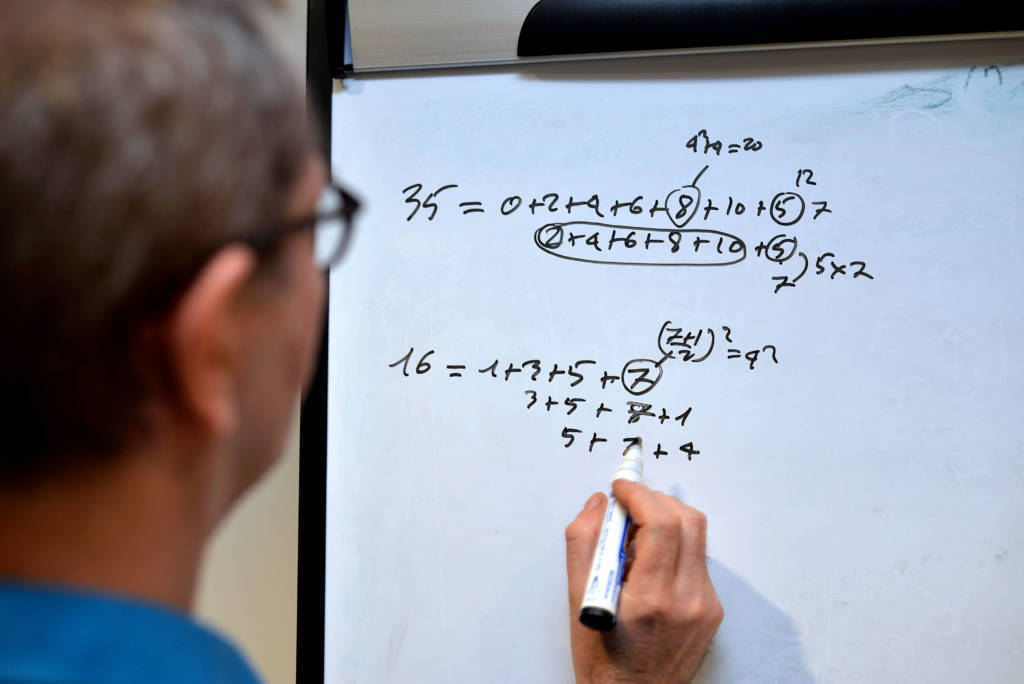 =20
12
35 = 0+2+4+6+8+10+5 7
2+4+6+8+10 +5
7 5x7
(7+1 / 2)² = 4²
16 = 1+3+5+7
3+5+ +1
5+7+4